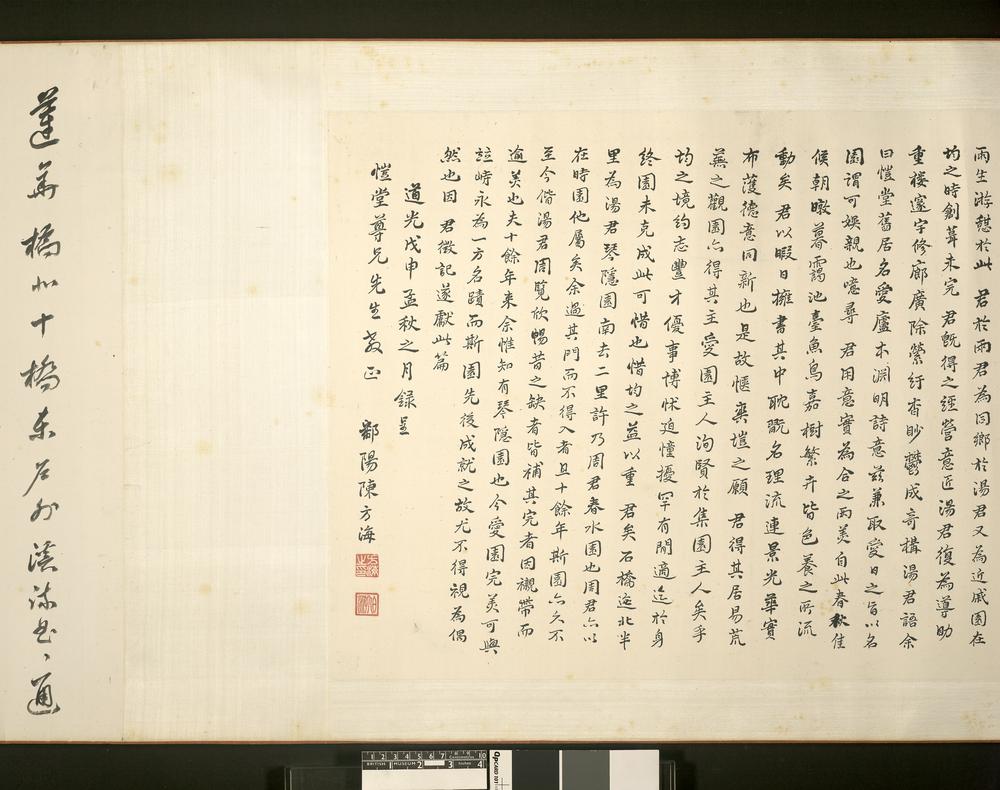 雨生游憩於此 君於雨君為同鄉於湯君又為近戚園在
均之時創葺未完 君既得之經營意匠湯君復為導助
重樓邃宇修廊廣除縈紆杳眇鬱成奇構湯君語余
曰愷堂舊居名愛廬本淵明詩意茲兼取愛日之旨以名
園謂可娛親也噫尋 君用意實為合之兩美自此春秋佳
候朝暾暮靄池臺魚鳥嘉樹繁卉皆色養之所流
動矣 君以暇日擁書其中耽翫名理流連景光華實
布濩德意同新也是故愜爽塏之願 君得其居易荒
蕪之觀園亦得其主愛園主人洵賢於集園主人矣乎
均之境約志豐才優事博怵迫憧擾罕有閒適迄於身
終園未克成此可惜也惜均之益以重 君矣石橋迤北半
里為湯君琴隱園南去二里許乃周君春水園也周君亦以
在時園他屬矣余過其門而不得入者且十餘年斯園亦久不
至今偕湯君周覽欣暢昔之缺者皆補其完者因襯帶而
逾美也夫十餘年來余惟知有琴隱園也今愛園完美可與
竝峙永為一方名蹟而斯園先後成就之故尤不得視為偶
然也因 君徵記遂獻此篇
道光戊申孟秋之月錄呈
愷堂尊兄先生教正
鄱陽陳方海
蓮華橋北十橋東